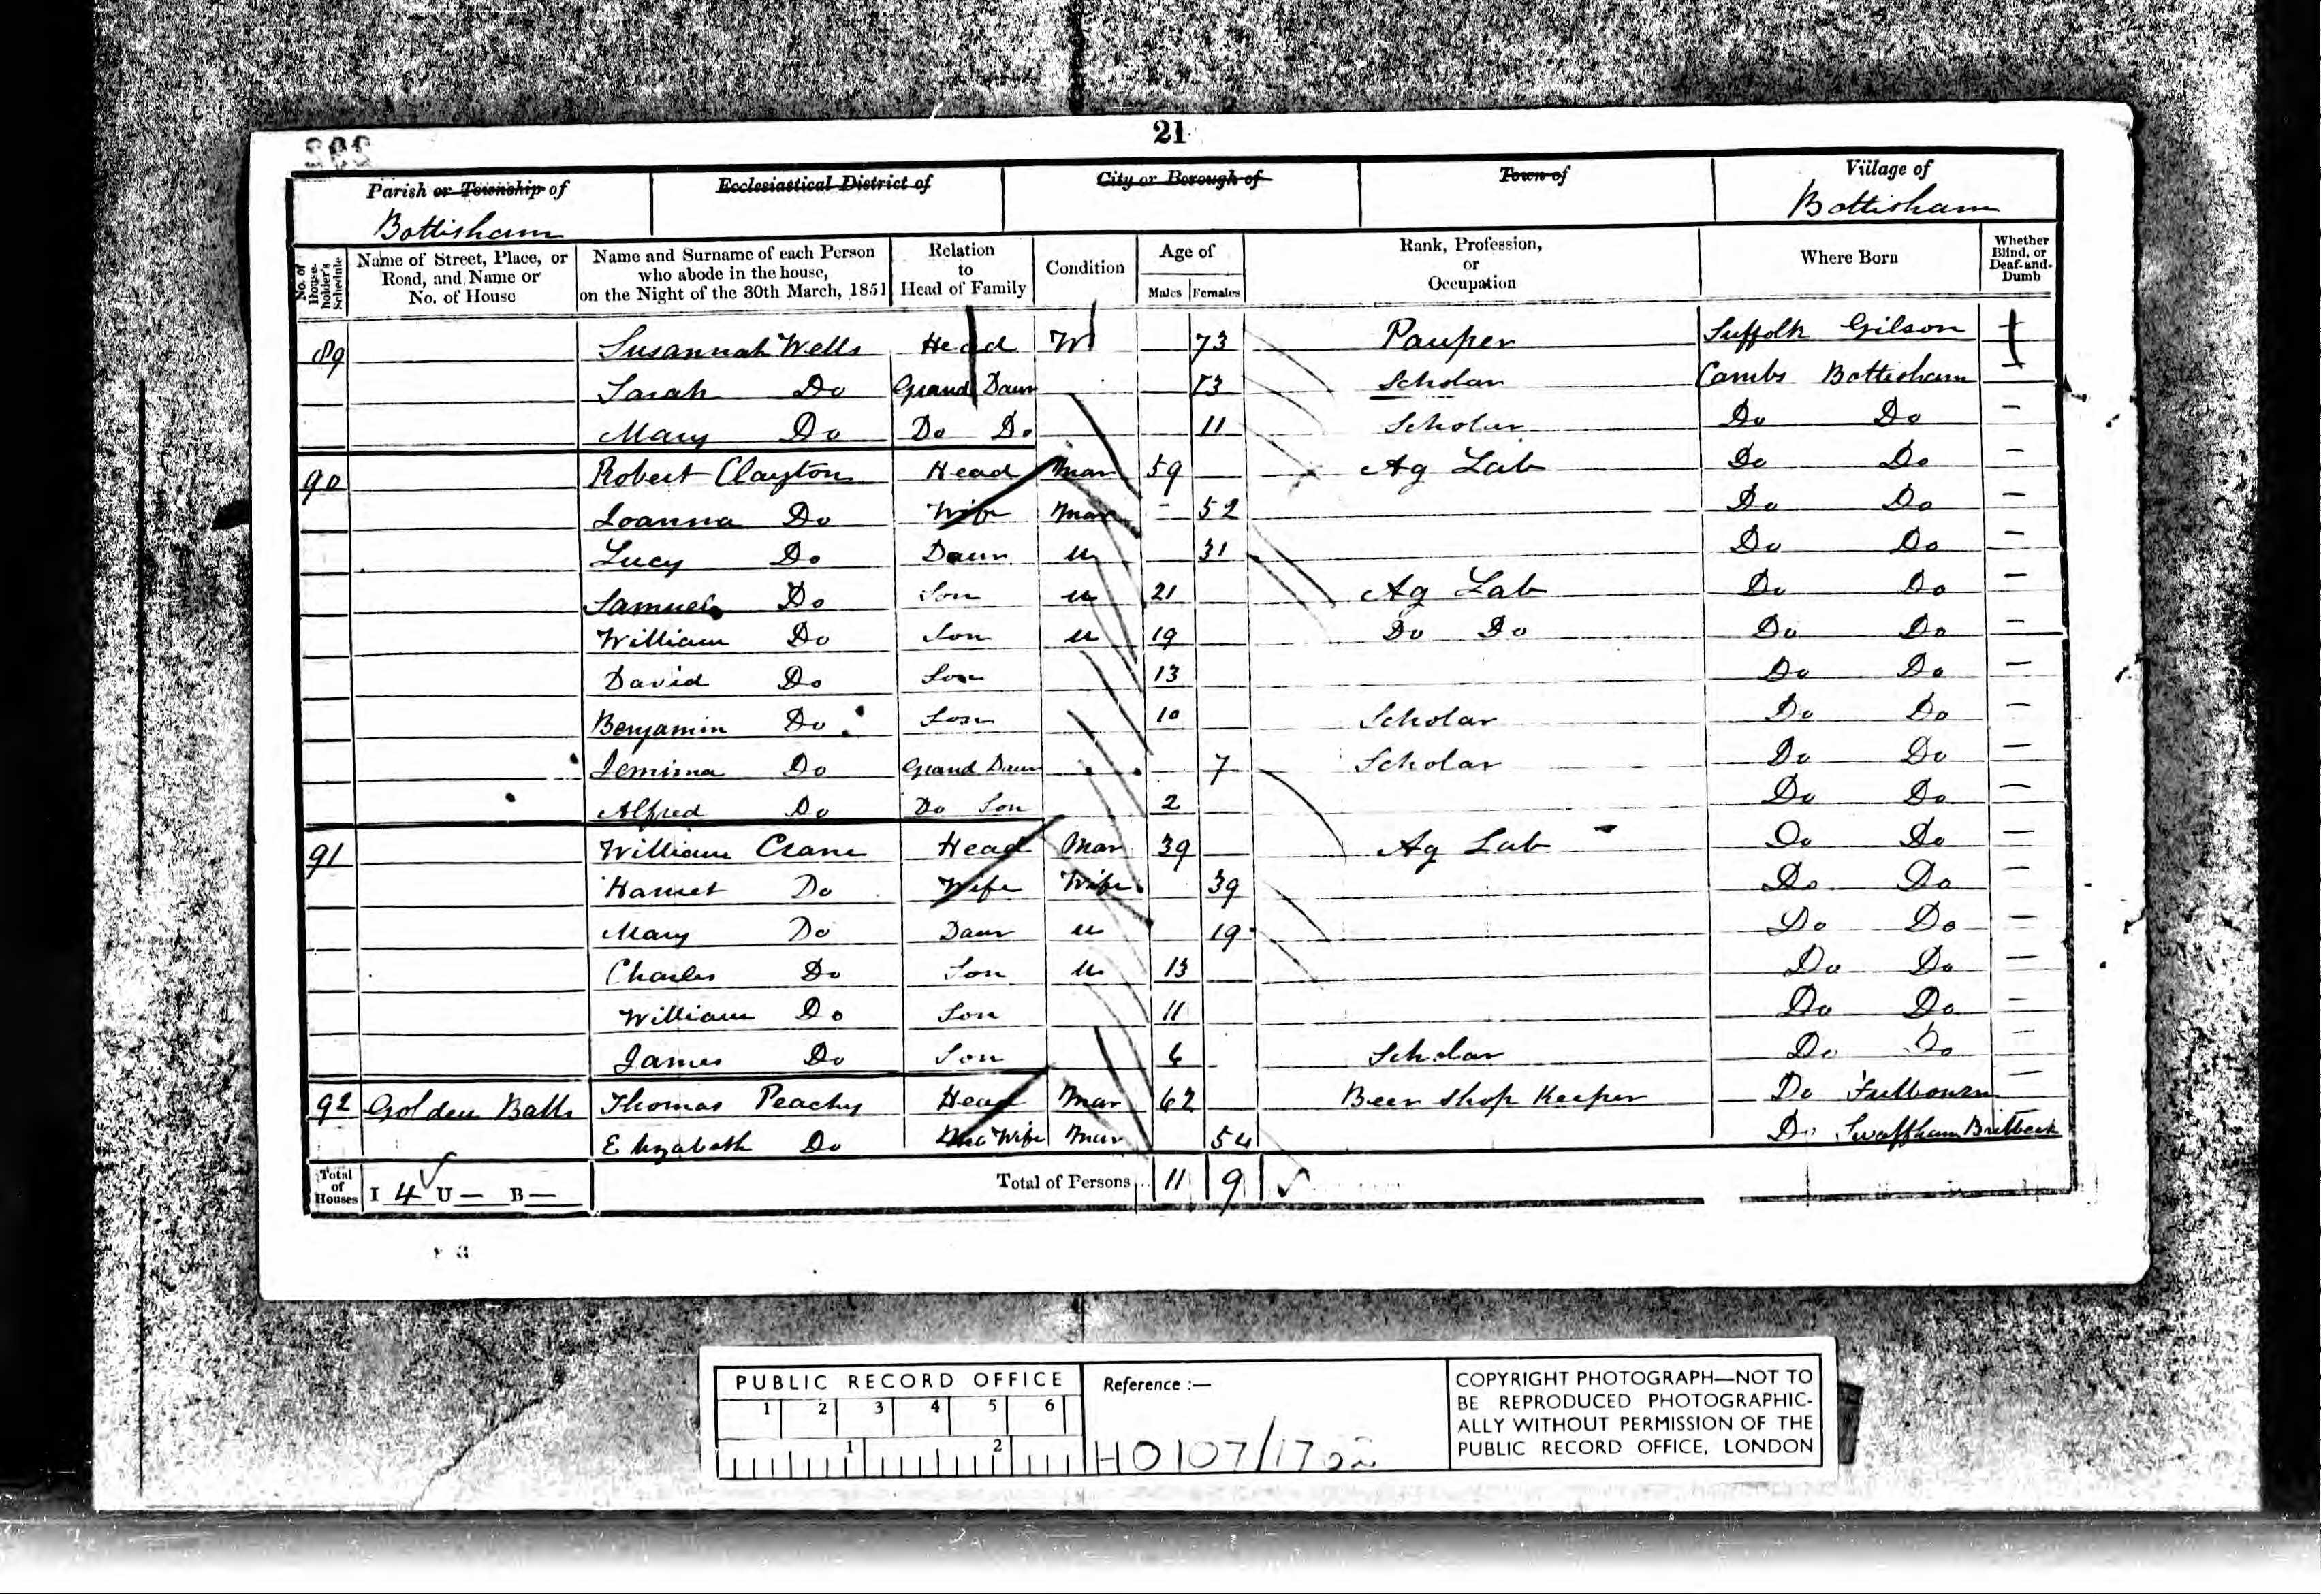 21
Parish or Township of
Bottisham
Ecclesiastical District of
City or Borough of
Town of
Village of
Bottisham
No. of House-holder's Schedule
Name of Street, Place, or Road, and Name or No. of House
Name and Surname of each Person who abode in the house, on the Night of the 30th March, 1851
Relation to Head of Family
Condition
Age of
Males Females
Rank, Profession, or Occupation
Where Born
Whether Blind, or Deaf-and-Dumb
89 Susannah Wells Head W 73 Pauper Suffolk Gilson
Sarah Do Grand Daur 13 Scholar Cambs Bottisham
Mary Do Do Do 11 Scholar Do Do
90 Robert Clayton Head Mar 59 Ag Lab Do Do
Joanna Do Wife Mar 52 Do Do
Lucy Do Daur U 31 Do Do
Samuel Do Son U 21 Ag Lab Do Do
William Do Son U 19 Do Do Do Do
David Do Son 13 Do Do
Benjamin Do Son 10 Scholar Do Do
Jemima Do Grand Daur 7 Scholar Do Do
Alfred Do Do Son 2 Do Do
91 William Crane Head Mar 39 Ag Lab Do Do
Harriet Do Wife Wife 39 Do Do
Mary Do Daur U 19 Do Do
Charles Do Son U 13 Do Do
William Do Son 11 Do Do
James Do Son 6 Scholar Do Do
92 Golden Balls Thomas Peachy Head Mar 62 Beer Shop Keeper Do Fulbourn
Elizabeth Do Wife Mar 54 Do Swaffham Bulbeck
Total of Houses I 4 U — B —
Total of Persons 11 9
PUBLIC RECORD OFFICE
1 2 3 4 5 6
1 2
Reference :—
HO107/1762
COPYRIGHT PHOTOGRAPH—NOT TO
BE REPRODUCED PHOTOGRAPHIC-
ALLY WITHOUT PERMISSION OF THE
PUBLIC RECORD OFFICE, LONDON